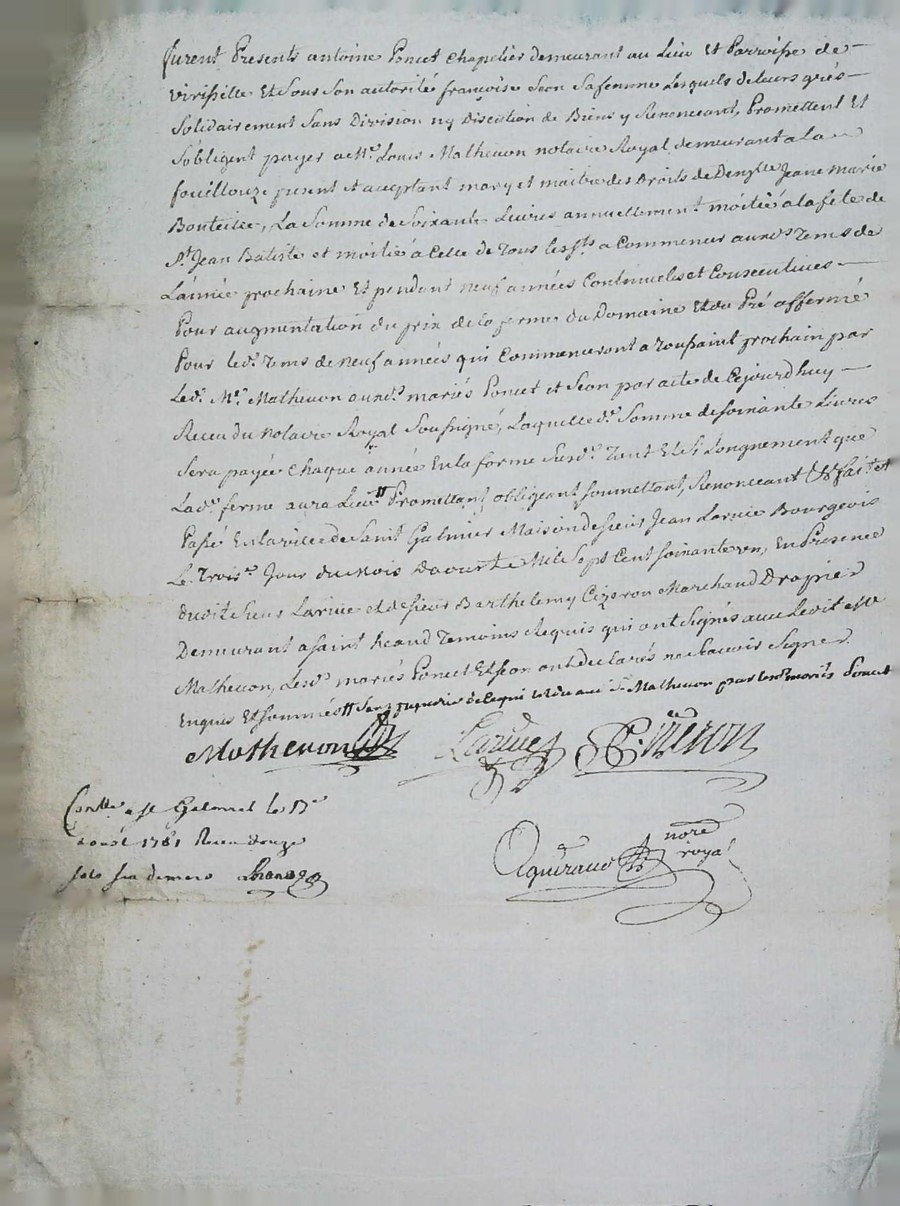 furent Presents antoine Poncet chapelier demeurant au Lieu Et Parroisse de
virisselle Et sous son autorité françoise Seon sa femme Lesquels de leurs grés
solidairement sans Division ny Discution de Biens y Renonceant, Promettent Et
s'obligent payer a Me. Louis Mathevon notaire Royal demeurant a la
fouillouze present et acceptant mary et maitre des Droits de Denglle Jeane Marie
Bonteille, La somme de soixante Livres annuellement moitiée a la fête de
st. Jean Batiste et moitié a Celle de Tous les sts a Commencer auxds. Tems de
L'année prochaine Et pendant neuf années Continuelles et Consecutives
Pour augmentation du prix de la ferme du Domaine Et du Pré affermé
Pour led. Tems de neuf années qui Commenceront a Toussaint prochain par
Led. Me. Mathevon auxd. mariés Poncet et Seon par acte de Cejourd'huy
Receu du Notaire Royal soussigné, Laquelle de. somme de soixante Livres
sera payée Chaque année En la forme susde. Tant Et si Longuement que
Lade. ferme aura Lieu, Promettant obligeant soumettant, Renonceant & fait et
Passé En la ville de Saint Galmier Maison de sieur Jean Larue Bourgeois
Le Troise. Jour du Mois D'aoust Mil sept Cent soixante un, En Presence
Dudit sieur Larue et de sieur Barthelemy Cizeron Marchand Drapier
Demeurant a saint heand Temoins Requis qui ont signés avec Ledit Me
Mathevon, Lesds. mariés Poncet Et Seon ont déclarés ne scavoir signer
Enquis Et sommés sans de ce qui est du aud. Sr. Mathevon par lesds mariés Poncet
Mathevon Larue Cizeron
Contlle. a st Galmier le
aoust 1761 Receu douze
sols six deniers
nore
royal